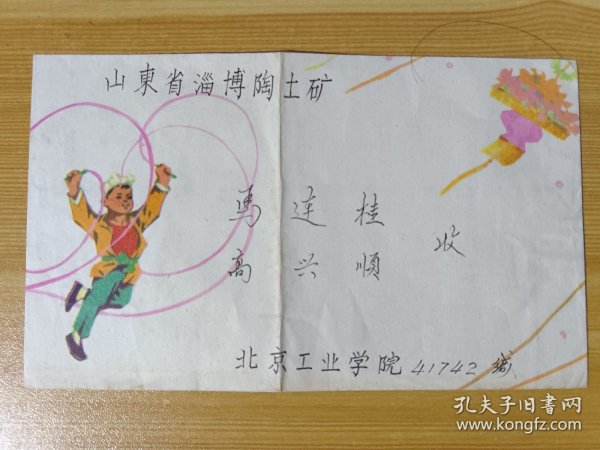 山東省淄博陶土矿
馬连桂
高兴顺
收
北京工业学院 41742 缄
孔夫子旧书网
www.kongfz.com